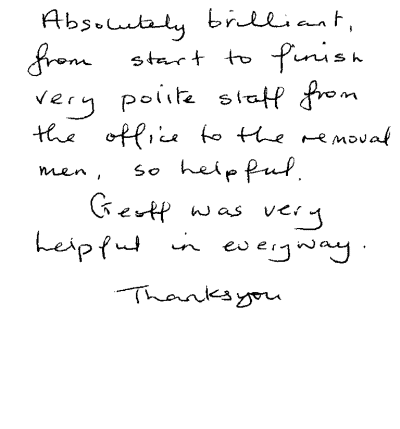 Absolutely brilliant,
from start to finish
very polite staff from
the office to the removal
men, so helpful.
Geoff was very
helpful in everyway.
Thanksyou